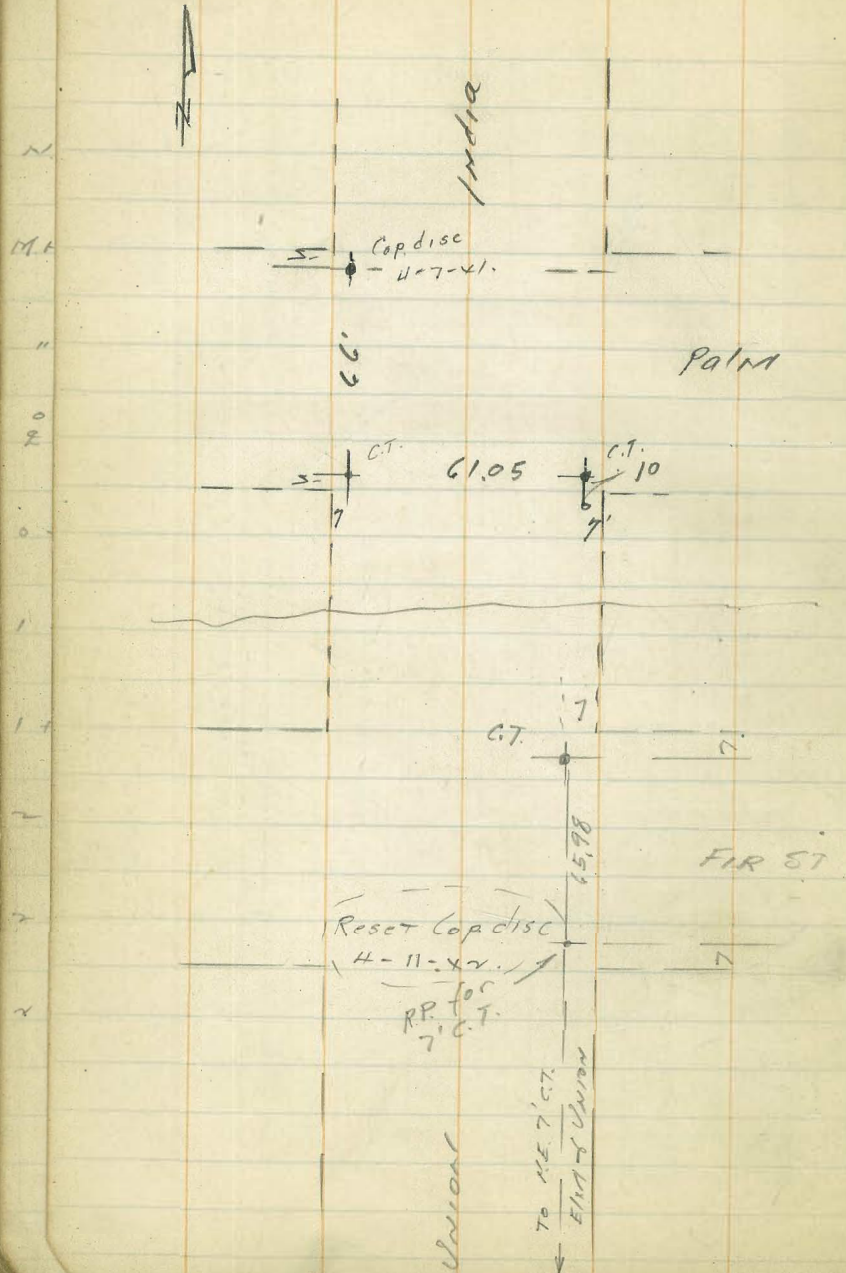 N
India
Cop. disc
5-
4-7-41.
66'
Palm
C.T.
C.T.
5-
61.05
10
7
7'
7'
C.T.
7
65.98
FIR ST
Reset Cop disc
4-11-42.
7
R.P. for
7' C.T.
UNION
TO N.E. 7' C.T.
Elm & UNION